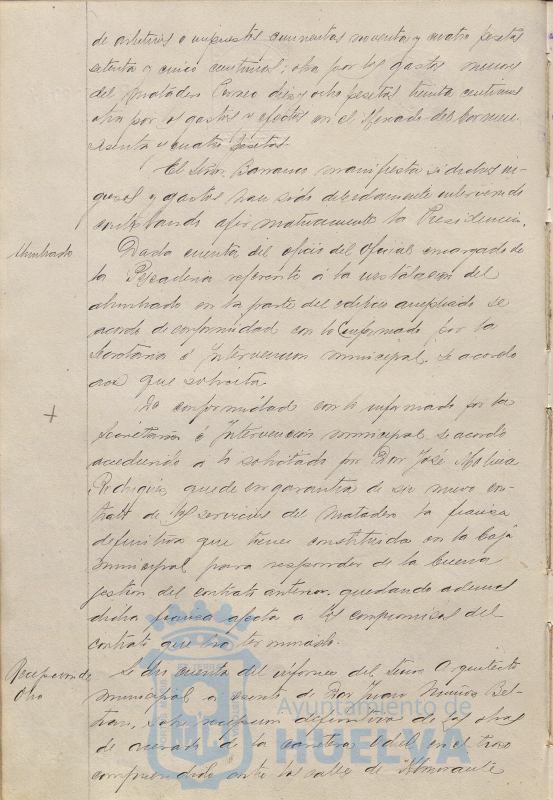 de arbitrios o impuestos quinientas noventa y cuatro pesetas
setenta y cinco centimos; otra por los gastos menores
del Matadero Correo diez y ocho pesetas treinta centimos
otra por gastos y efectos en el Mercado del Carmen
sesenta y cuatro pesetas.
El Señor Barranco manifiesta si dichos in-
gresos y gastos han sido debidamente intervenidos
contestando afirmativamente la Presidencia.
Alumbrado
Dada cuenta del oficio del Oficial encargado de
la Pescadería referente á la instalacion del
alumbrado en la parte del edificio ampliado se
acordó de conformidad con lo informado por la
Secretaria é Intervencion municipal se acordo
que solicita.
De conformidad con lo informado por la
Secretaria é Intervencion municipal se acordo
accediendo á lo solicitado por Don José Molina
Rodriguez, quede en garantia de su nuevo con-
trato de los servicios del Matadero la fianza
definitiva que tiene constituida en la Caja
municipal para responder de la buena
gestion del contrato anterior quedando ademas
dicha fianza afecta a los compromisos del
contrato que ha terminado.
Recepcion de
Obra
Se dió cuenta del informe del Señor Arquitecto
municipal a escrito de Don Juan Muñoz Bel-
tran, sobre recepcion definitiva de las obras
de de la carretera Odiel en el trozo
comprendido entre las calles de Almirante
Ayuntamiento de
HUELVA